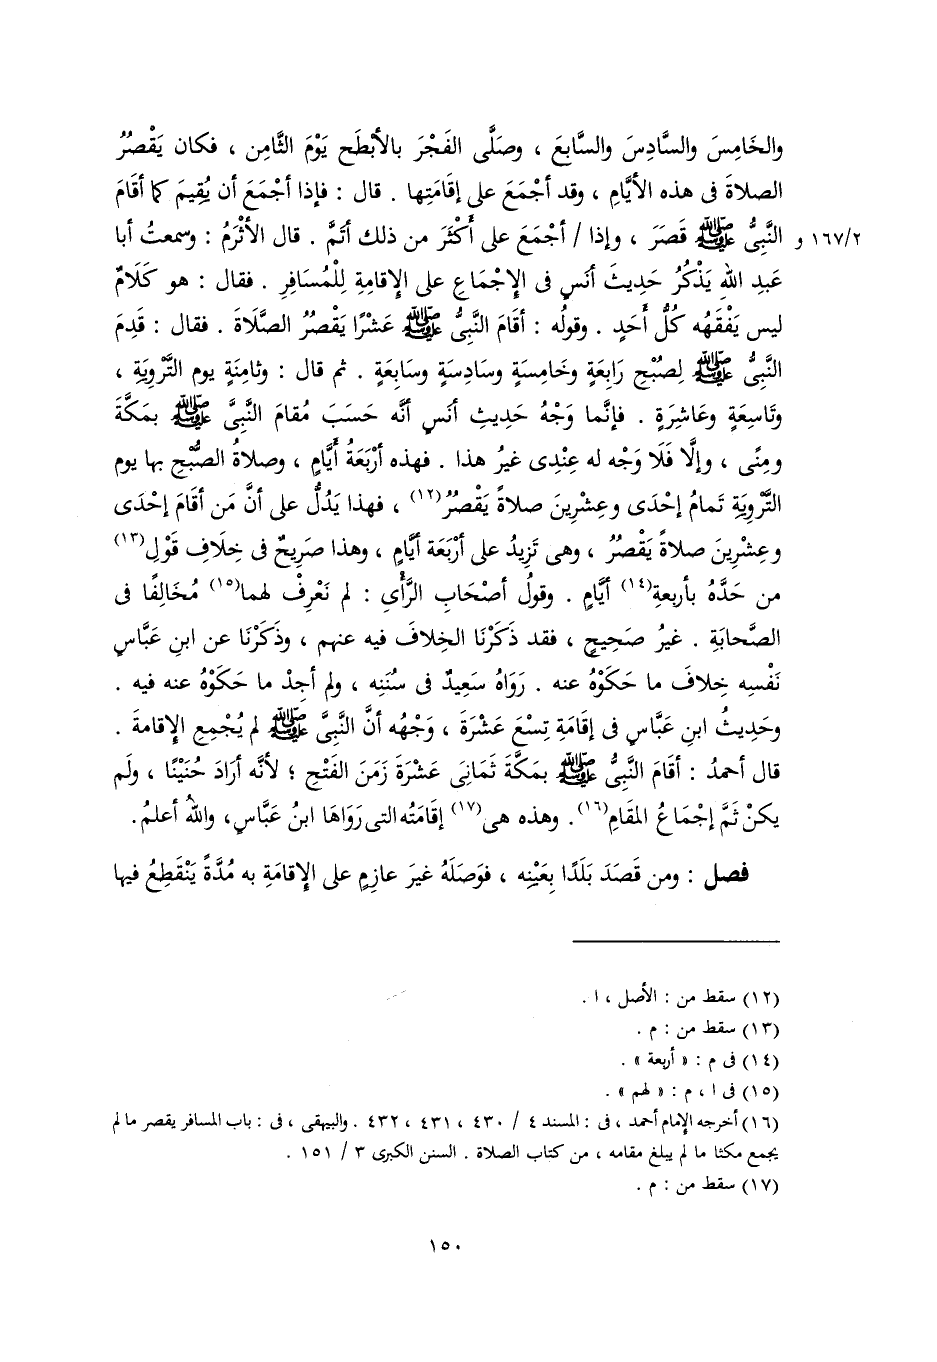 والخَامِسَ والسَّادِسَ والسَّابِعَ ، وصَلَّى الفَجْرَ بالأبْطَحِ يَوْمَ الثَّامِنِ ، فكان يَقْصُرُ
الصلاةَ فى هذه الأيَّامِ ، وقد أجْمَعَ على إقَامَتِها . قال : فإذا أجْمَعَ أن يُقِيمَ كما أقَامَ
١٦٧/٢ و النَّبِىُّ ﷺ قَصَرَ ، وإذا / أجْمَعَ على أكْثَرَ من ذلك أتَمَّ . قال الأثْرَمُ : وسمعتُ أبا
عَبدِ اللهِ يَذْكُرُ حَدِيثَ أنَسٍ فى الإجْمَاعِ على الإقامةِ لِلْمُسَافِرِ . فقال : هو كَلَامٌ
ليس يَفْقَهُه كُلُّ أَحَدٍ . وقولُه : أقَامَ النَّبِىُّ ﷺ عَشْرًا يَقْصُرُ الصَّلَاةَ . فقال : قَدِمَ
النَّبِىُّ ﷺ لِصُبْحِ رَابِعَةٍ وخَامِسَةٍ وسَادِسَةٍ وسَابِعَةٍ . ثم قال : وثامِنَةٍ يوم التَّرْوِيَةِ ،
وتَاسِعَةٍ وعَاشِرَةٍ . فإنَّما وَجْهُ حَدِيثِ أنَسٍ أنَّه حَسَبَ مُقامَ النَّبِىِّ ﷺ بمَكَّةَ
ومِنًى ، وإلَّا فَلَا وَجْه له عِنْدِى غيرُ هذا . فهذه أرْبَعَةُ أيَّامٍ ، وصلاةُ الصُّبْحِ بها يوم
التَّرْوِيَةِ تَمامُ إحْدَى وعِشْرِينَ صلاةً يَقْصُرُ(١٢) ، فهذا يَدُلُّ على أنَّ مَن أقَامَ إحْدَى
وعِشْرِينَ صلاةً يَقْصُرُ ، وهى تَزِيدُ على أرْبَعَة أيَّامٍ ، وهذا صَرِيحٌ فى خِلَافِ قَوْلِ(١٣)
من حَدَّهُ بأربعةِ(١٤) أيَّامٍ . وقولُ أصْحَابِ الرَّأْىِ : لم نَعْرِفْ لهما(١٥) مُخَالِفًا فى
الصَّحابَةِ . غيرُ صَحِيحٍ ، فقد ذَكَرْنَا الخِلافَ فيه عنهم ، وذَكَرْنَا عن ابنِ عَبَّاسٍ
نَفْسِه خِلافَ ما حَكَوْهُ عنه . رَوَاهُ سَعِيدٌ فى سُنَنِه ، ولم أجِدْ ما حَكَوْهُ عنه فيه .
وحَدِيثُ ابنِ عَبَّاسٍ فى إقَامَةِ تِسْعَ عَشْرَةَ ، وَجْهُه أنَّ النَّبِىَّ ﷺ لم يُجْمِعِ الإقامةَ .
قال أحمدُ : أقَامَ النَّبِىُّ ﷺ بمَكَّةَ ثَمانِىَ عَشْرَةَ زَمَنَ الفَتْحِ ؛ لأنَّه أرَادَ حُنَيْنًا ، ولَم
يكنْ ثَمَّ إجْمَاعُ المقَامِ(١٦) . وهذه هى(١٧) إقَامَتُه التى رَوَاهَا ابنُ عَبَّاسٍ، واللهُ أعلمُ .
فصل : ومن قَصَدَ بَلَدًا بِعَيْنِه ، فوَصَلَهُ غيرَ عازِمٍ على الإقَامَةِ به مُدَّةً يَنْقَطِعُ فيها
(١٢) سقط من : الأصل ، ا .
(١٣) سقط من : م .
(١٤) فى م : « أربعة » .
(١٥) فى ا ، م : « لهم » .
(١٦) أخرجه الإمام أحمد ، فى : المسند ٤ / ٤٣٠ ، ٤٣١ ، ٤٣٢ . والبيهقى ، فى : باب المسافر يقصر ما لم
يجمع مكثا ما لم يبلغ مقامه ، من كتاب الصلاة . السنن الكبرى ٣ / ١٥١ .
(١٧) سقط من : م .
١٥٠